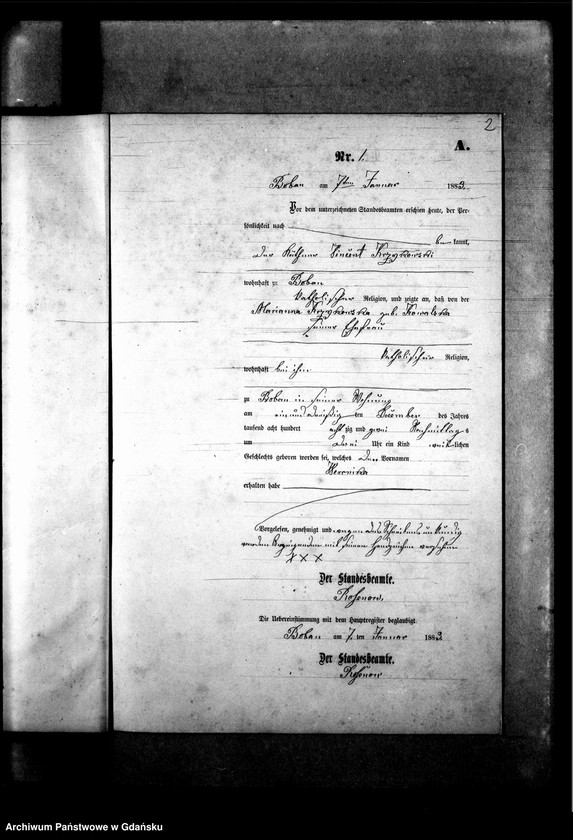 2
A.
Nr. 1.
Boban am 7ten Januar 1883.
Vor dem unterzeichneten Standesbeamten erschien heute, der Per-
sönlichkeit nach
bekannt,
der Käthner Vincent Krzykowski
wohnhaft zu Boban
katholischer Religion, und zeigte an, daß von der
Marianna Krzykowska geb. Kowalska
seiner Ehefrau
katholischer Religion,
wohnhaft bei ihm
zu Boban in seiner Wohnung
am ein und dreißig ten Dezember des Jahres
tausend acht hundert achtzig und zwei Nachmittags
um drei Uhr ein Kind weiblichen
Geschlechts geboren worden sei, welches den Vornamen
Veronika
erhalten habe
Vorgelesen, genehmigt und wegen des Schreibens unkundig
von dem Anzeigenden mit seinem Handzeichen versehen
XXX
Der Standesbeamte.
Rosenow.
Die Uebereinstimmung mit dem Hauptregister beglaubigt
Boban am 7. ten Januar 1883.
Der Standesbeamte.
Rosenow
Archiwum Państwowe w Gdańsku